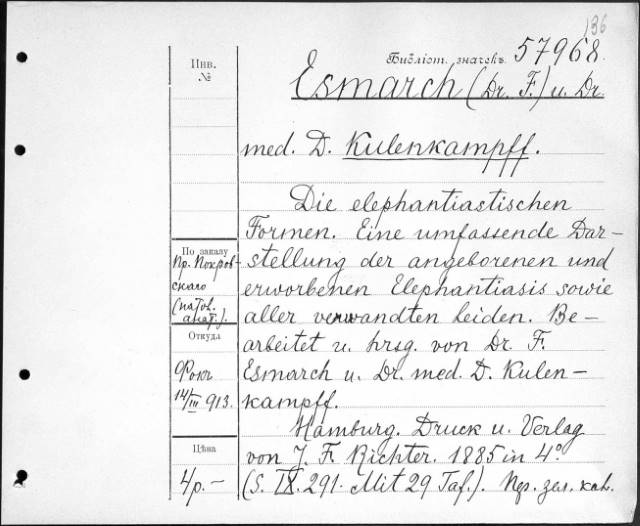 136
Библіот. значекъ 57968
Инв.
№
Esmarch (Dr. F.) u. Dr.
med. D. Kulenkampff.
Die elephantiastischen
Formen. Eine umfassende Dar-
stellung der angeborenen und
erworbenen Elephantiasis sowie
aller verwandten Leiden. Be-
arbeitet u. hrsg. von Dr. F.
Esmarch u. Dr. med. D. Kulen-
kampff.
Hamburg. Druck u. Verlag
von J. F. Richter. 1885 in 4°
(S. IX. 291. Mit 29 Taf.).
По заказу
Пр. Покров-
скаго
(патол.
анат.).
Откуда
Фокъ
14/III 913.
Цѣна
4р.-